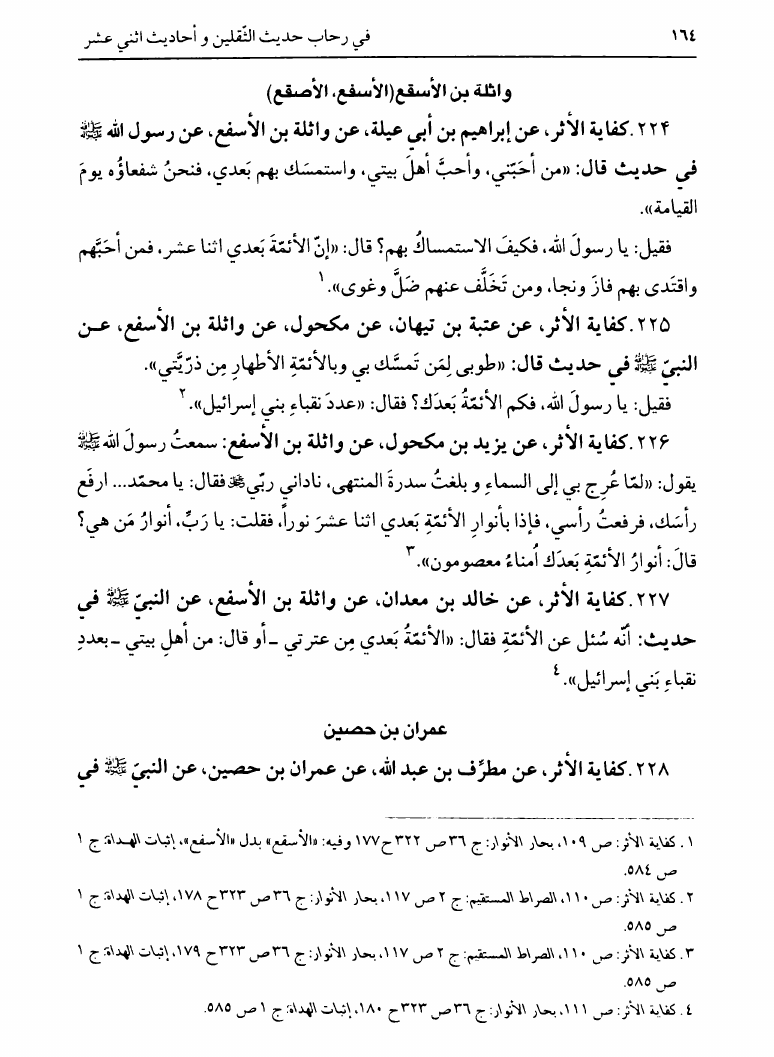 ١٦٤
في رحاب حديث الثّقلين و أحاديث اثني عشر
واثلة بن الأسقع(الأسفع، الأصقع)
٢٢۴. كفاية الأثر، عن إبراهيم بن أبي عيلة، عن واثلة بن الأسفع، عن رسول الله ﷺ
في حديث قال: «من أحَبّني، وأحبَّ أهلَ بيتي، واستمسَك بهم بَعدي، فنحنُ شفعاؤُه يومَ
القيامة».
فقيل: يا رسولَ الله، فكيفَ الاستمساكُ بهم؟ قال: «إنّ الأئمّةَ بَعدي اثنا عشر، فمن أحَبَّهم
واقتَدى بهم فازَ ونجا، ومن تَخَلَّف عنهم ضَلَّ وغوى».١
٢٢٥. كفاية الأثر، عن عتبة بن تيهان، عن مكحول، عن واثلة بن الأسفع، عـن
النبيّ ﷺ في حديث قال: «طوبى لِمَن تَمسَّك بي وبالأئمّةِ الأطهارِ مِن ذرّيَّتي».
فقيل: يا رسولَ الله، فكم الأئمّةُ بَعدَك؟ فقال: «عددَ نقباءِ بني إسرائيل».٢
٢٢۶. كفاية الأثر، عن يزيد بن مكحول، عن واثلة بن الأسفع: سمعتُ رسولَ الله ﷺ
يقول: «لمّا عُرِج بي إلى السماءِ و بلغتُ سدرةَ المنتهى، ناداني ربّي ﷻ فقال: يا محمّد... ارفَع
رأسَك، فرفعتُ رأسي، فإذا بأنوارِ الأئمّةِ بَعدي اثنا عشرَ نوراً، فقلت: يا رَبِّ، أنوارُ مَن هي؟
قالَ: أنوارُ الأئمّةِ بَعدَك اُمناءُ معصومون».٣
٢٢٧. كفاية الأثر، عن خالد بن معدان، عن واثلة بن الأسفع، عن النبيّ ﷺ في
حديث: أنّه سُئل عن الأئمّةِ فقال: «الأئمّةُ بَعدي مِن عترتي ـ أو قال: من أهلِ بيتي ـ بعددِ
نقباءِ بَني إسرائيل».٤
عمران بن حصين
٢٢٨. كفاية الأثر، عن مطرِّف بن عبد الله، عن عمران بن حصين، عن النبيّ ﷺ في
١. كفاية الأثر: ص ١٠٩، بحار الأنوار: ج ٣٦ ص ٣٢٢ ح ١٧٧ وفيه: «الأسقع» بدل «الأسفع»، إثبات الهـداة: ج ١
ص ٥٨٤.
٢. كفاية الأثر: ص ١١٠، الصراط المستقيم: ج ٢ ص ١١٧، بحار الأنوار: ج ٣٦ ص ٣٢٣ ح ١٧٨، إثبات الهداة: ج ١
ص ٥٨٥.
٣. كفاية الأثر: ص ١١٠، الصراط المستقيم: ج ٢ ص ١١٧، بحار الأنوار: ج ٣٦ ص ٣٢٣ ح ١٧٩، إثبات الهداة: ج ١
ص ٥٨٥.
٤. كفاية الأثر: ص ١١١، بحار الأنوار: ج ٣٦ ص ٣٢٣ ح ١٨٠، إثبات الهداة: ج ١ ص ٥٨٥.